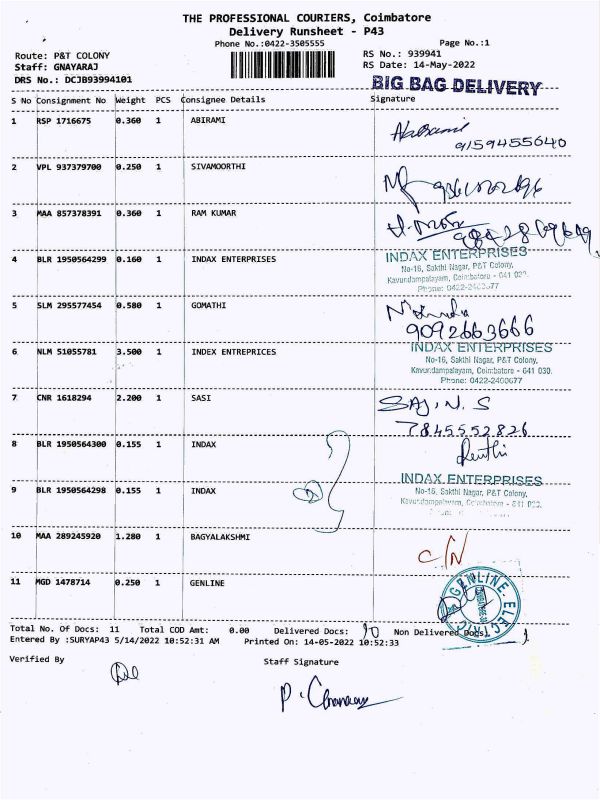 THE PROFESSIONAL COURIERS, Coimbatore
Delivery Runsheet - P43
Phone No.:0422-3505555
Page No.:1
Route: P&T COLONY
RS No.: 939941
Staff: GNAYARAJ
RS Date: 14-May-2022
DRS No.: DCJB93994101
BIG BAG DELIVERY
S No Consignment No Weight PCS Consignee Details Signature
1 RSP 1716675 0.360 1 ABIRAMI
9159455640
2 VPL 937379700 0.250 1 SIVAMOORTHI
3 MAA 857378391 0.360 1 RAM KUMAR
4 BLR 1950564299 0.160 1 INDAX ENTERPRISES
INDAX ENTERPRISES
No-16, Sakthi Nagar, P&T Colony,
Kavundampalayam, Coimbatore - 641 030.
Phone: 0422-2400677
5 SLM 295577454 0.580 1 GOMATHI
9092663666
6 NLM 51055781 3.500 1 INDEX ENTREPRICES
INDAX ENTERPRISES
No-16, Sakthi Nagar, P&T Colony,
Kavundampalayam, Coimbatore - 641 030.
Phone: 0422-2400677
7 CNR 1618294 2.200 1 SASI
SAJ. N. S
7845552826
8 BLR 1950564300 0.155 1 INDAX
9 BLR 1950564298 0.155 1 INDAX
INDAX ENTERPRISES
No-16, Sakthi Nagar, P&T Colony,
Kavundampalayam, Coimbatore - 641 030.
10 MAA 289245920 1.280 1 BAGYALAKSHMI
C/N
11 MGD 1478714 0.250 1 GENLINE
GENLINE ELECTRIC
Total No. Of Docs: 11 Total COD Amt: 0.00 Delivered Docs: 10 Non Delivered Docs: 1
Entered By :SURYAP43 5/14/2022 10:52:31 AM Printed On: 14-05-2022 10:52:33
Verified By
Staff Signature